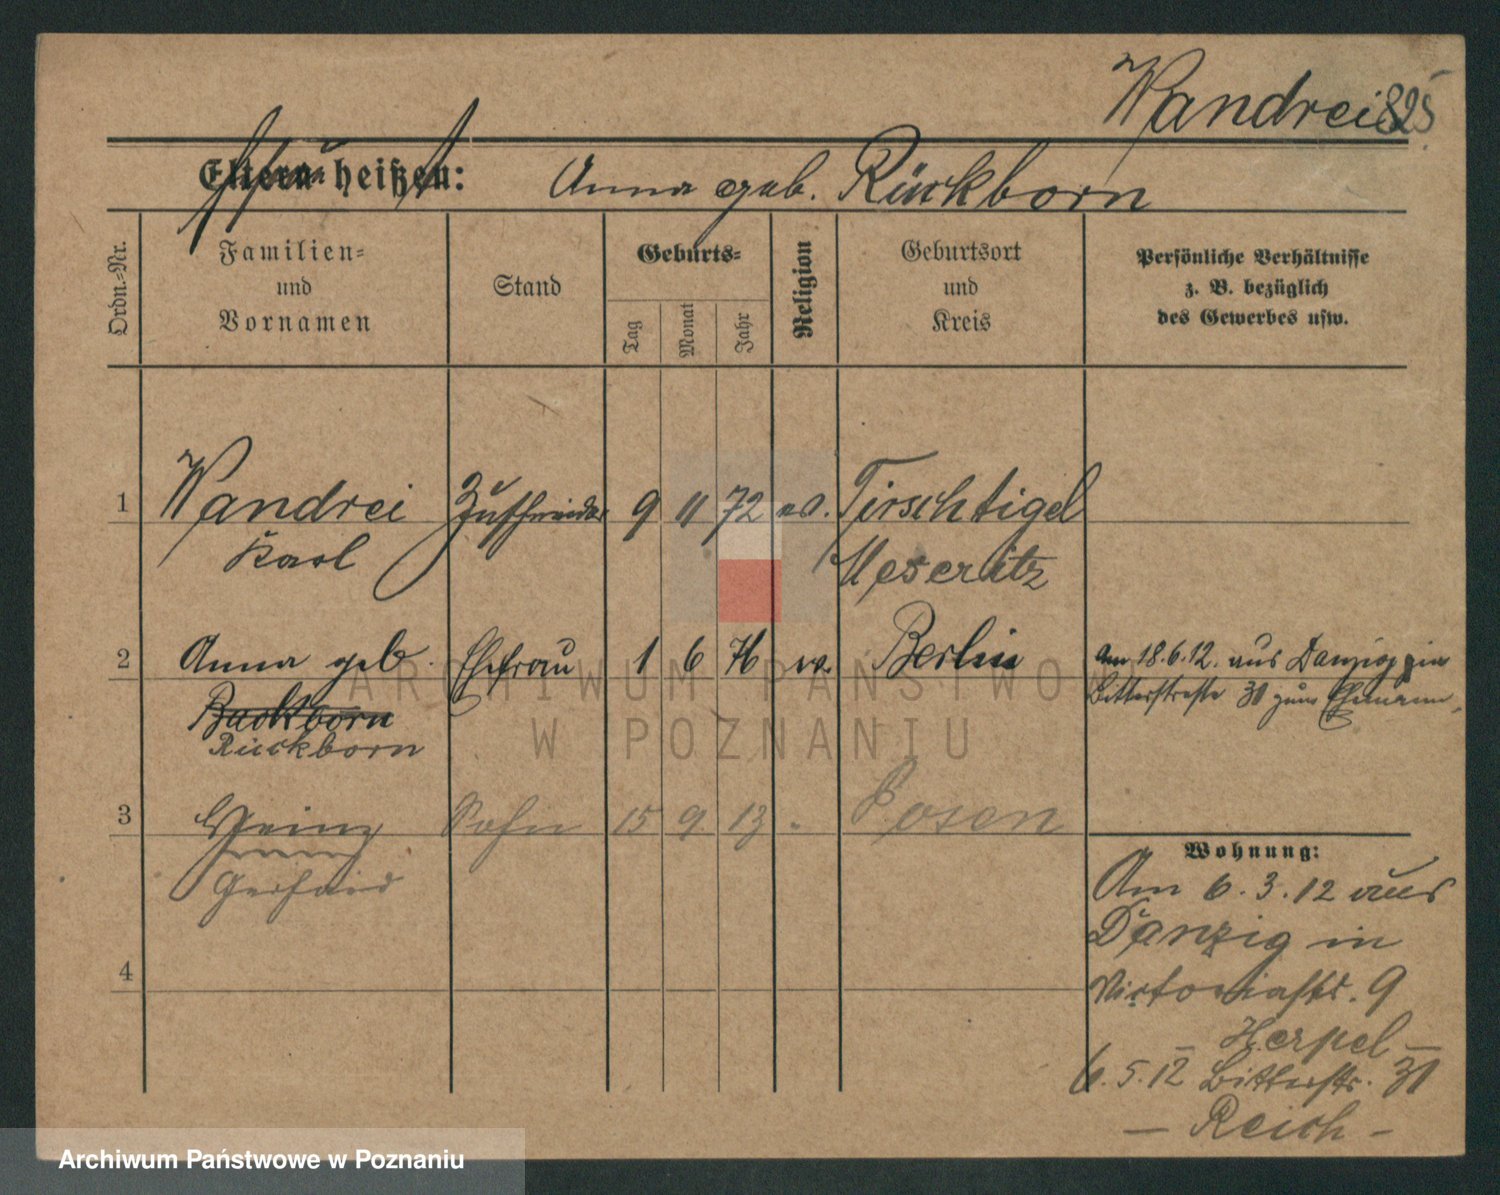 Wandrei 825
Eltern heißen: Anna geb. Rückborn
Ordn.-Nr.
Familien-
und
Vornamen
Stand
Geburts-
Tag
Monat
Jahr
Religion
Geburtsort
und
Kreis
Persönliche Verhältnisse
z. B. bezüglich
des Gewerbes usw.
1 Wandrei Zuschneider 9 11 72 ev. Tirschtigel
Karl Meseritz
2 Anna geb. Ehefrau 1 6 76 ev. Berlin
Am 18.6.12. aus Danzig
Bitterstraße 31 zum Ehemann
Backborn
Rückborn
3 Heinz Sohn 15 9 13 " Posen
Gerhard
4
Wohnung:
Am 6.3.12 aus
Danzig in
Victoriastr. 9
Herpel –
6.5.12 Bitterstr. 31
– Reich –
ARCHIWUM PAŃSTWOWE
W POZNANIU
Archiwum Państwowe w Poznaniu